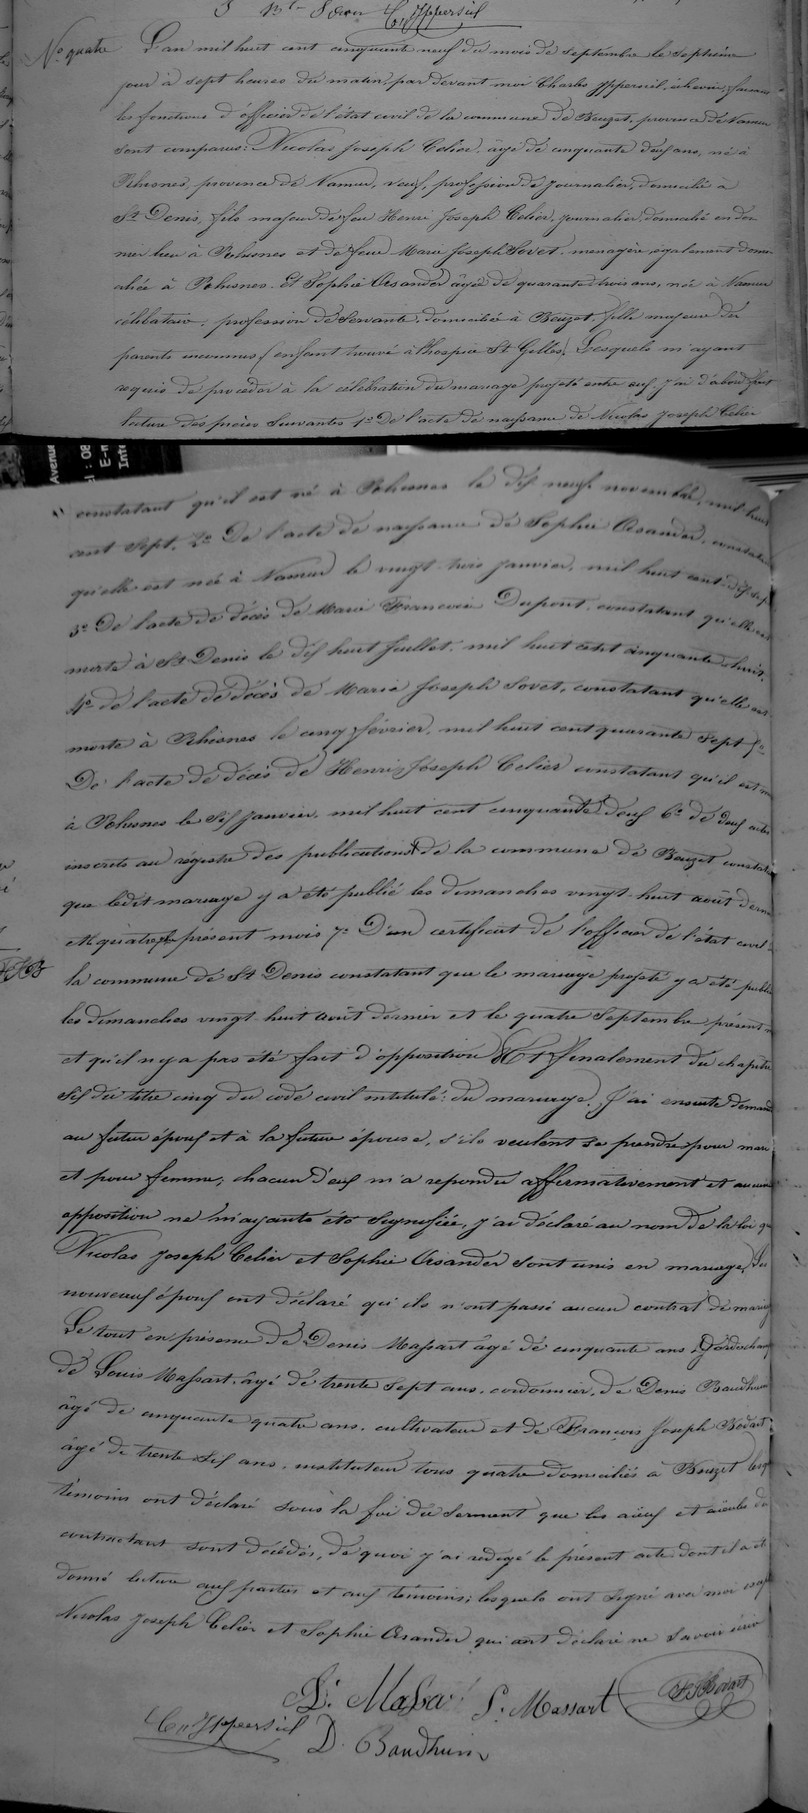 N° quatre L'an mil huit cent cinquante neuf du mois de septembre le septième
jour à sept heures du matin, par devant moi Charles Yppersiel, échevin, faisant
les fonctions d'officier de l'état civil de la commune de Beuzet, province de Namur
sont comparus: Nicolas Joseph Celier, âgé de cinquante deux ans, né à
Rhisnes, province de Namur, veuf, profession de journalier, domicilié à
St Denis, fils majeur de feu Henri Joseph Celier, journalier, domicilié en der
nier lieu à Rhisnes et de feue Marie Joseph Sovet, menagère, également domi
ciliée à Rhisnes. Et Sophie Orsander âgée de quarante trois ans, née à Namur
célibataire, profession de Servante, domiciliée à Beuzet, fille majeure de
parents inconnus (enfant trouvé à l'hospice St Gilles). Lesquels m'ayant
requis de procéder à la célébration du mariage projeté entre eux, j'ai d'abord fait
lecture des pièces Suivantes 1° De l'acte de naissance de Nicolas Joseph Celier
constatant qu'il est né à Rhisnes le dix neuf novembre, mil huit
cent Sept. 2° De l'acte de naissance de Sophie Orsander, constatant
qu'elle est née à Namur le vingt-trois janvier, mil huit cent dix sep
3° De l'acte de décès de Marie Francoise Dupont, constatant qu'elle est
morte à St Denis le dix huit Juillet, mil huit cent cinquante huit.
4° de l'acte de décès de Marie Joseph Sovet, constatant qu'elle est
morte à Rhisnes le cinq février, mil huit cent quarante Sept 5°
De l'acte de décès de Henri Joseph Celier constatant qu'il est m
à Rhisnes le Six janvier, mil huit cent cinquante deux 6° de deux actes
inscrits au régistre des publications de la commune de Beuzet constata
que ledit mariage y a été publié les dimanches vingt-huit août dernier
et quatre du présent mois 7° D'un certificat de l'officier de l'état civil
la commune de St Denis constatant que le mariage projeté y a été publié
les dimanches vingt-huit août dernier et le quatre Septembre présent m
et qu'il n'y a pas été fait d'opposition Et finalement du chapitre
Six du titre cinq du code civil intitulé: du mariage. J'ai ensuite demandé
au futur époux et à la future épouse, s'ils veulent se prendre pour mari
et pour femme; chacun d'eux m'a repondu affirmativement et aucune
opposition ne m'ayante été Signifiée, j'ai déclaré au nom de la loi q
Nicolas Joseph Celier et Sophie Orsander sont unis en mariage. Les
nouveaux époux ont déclaré qu'ils n'ont passé aucun contrat de mariag
Le tout en présence de Denis Massart âgé de cinquante ans, Gardechamp
de Louis Massart, âgé de trente Sept ans, cordonnier, de Denis Baudhuin
âgé de cinquante quatre ans, cultivateur et de François Joseph Bodart
âgé de trente Six ans, instituteur tous quatre domiciliés à Beuzet lesq
témoins ont déclaré sous la foi du Serment que les aïeux et aïeules du
contractant sont décédés, de quoi j'ai redigé le présent acte dont il a été
donné lecture aux parties et aux témoins; lesquels ont Signé avec moi excep
Nicolas Joseph Celier et Sophie Orsander qui ont déclaré ne Savoir écrire
D: Massart L. Massart FJBodart
Ch Yppersiel D. Baudhuin